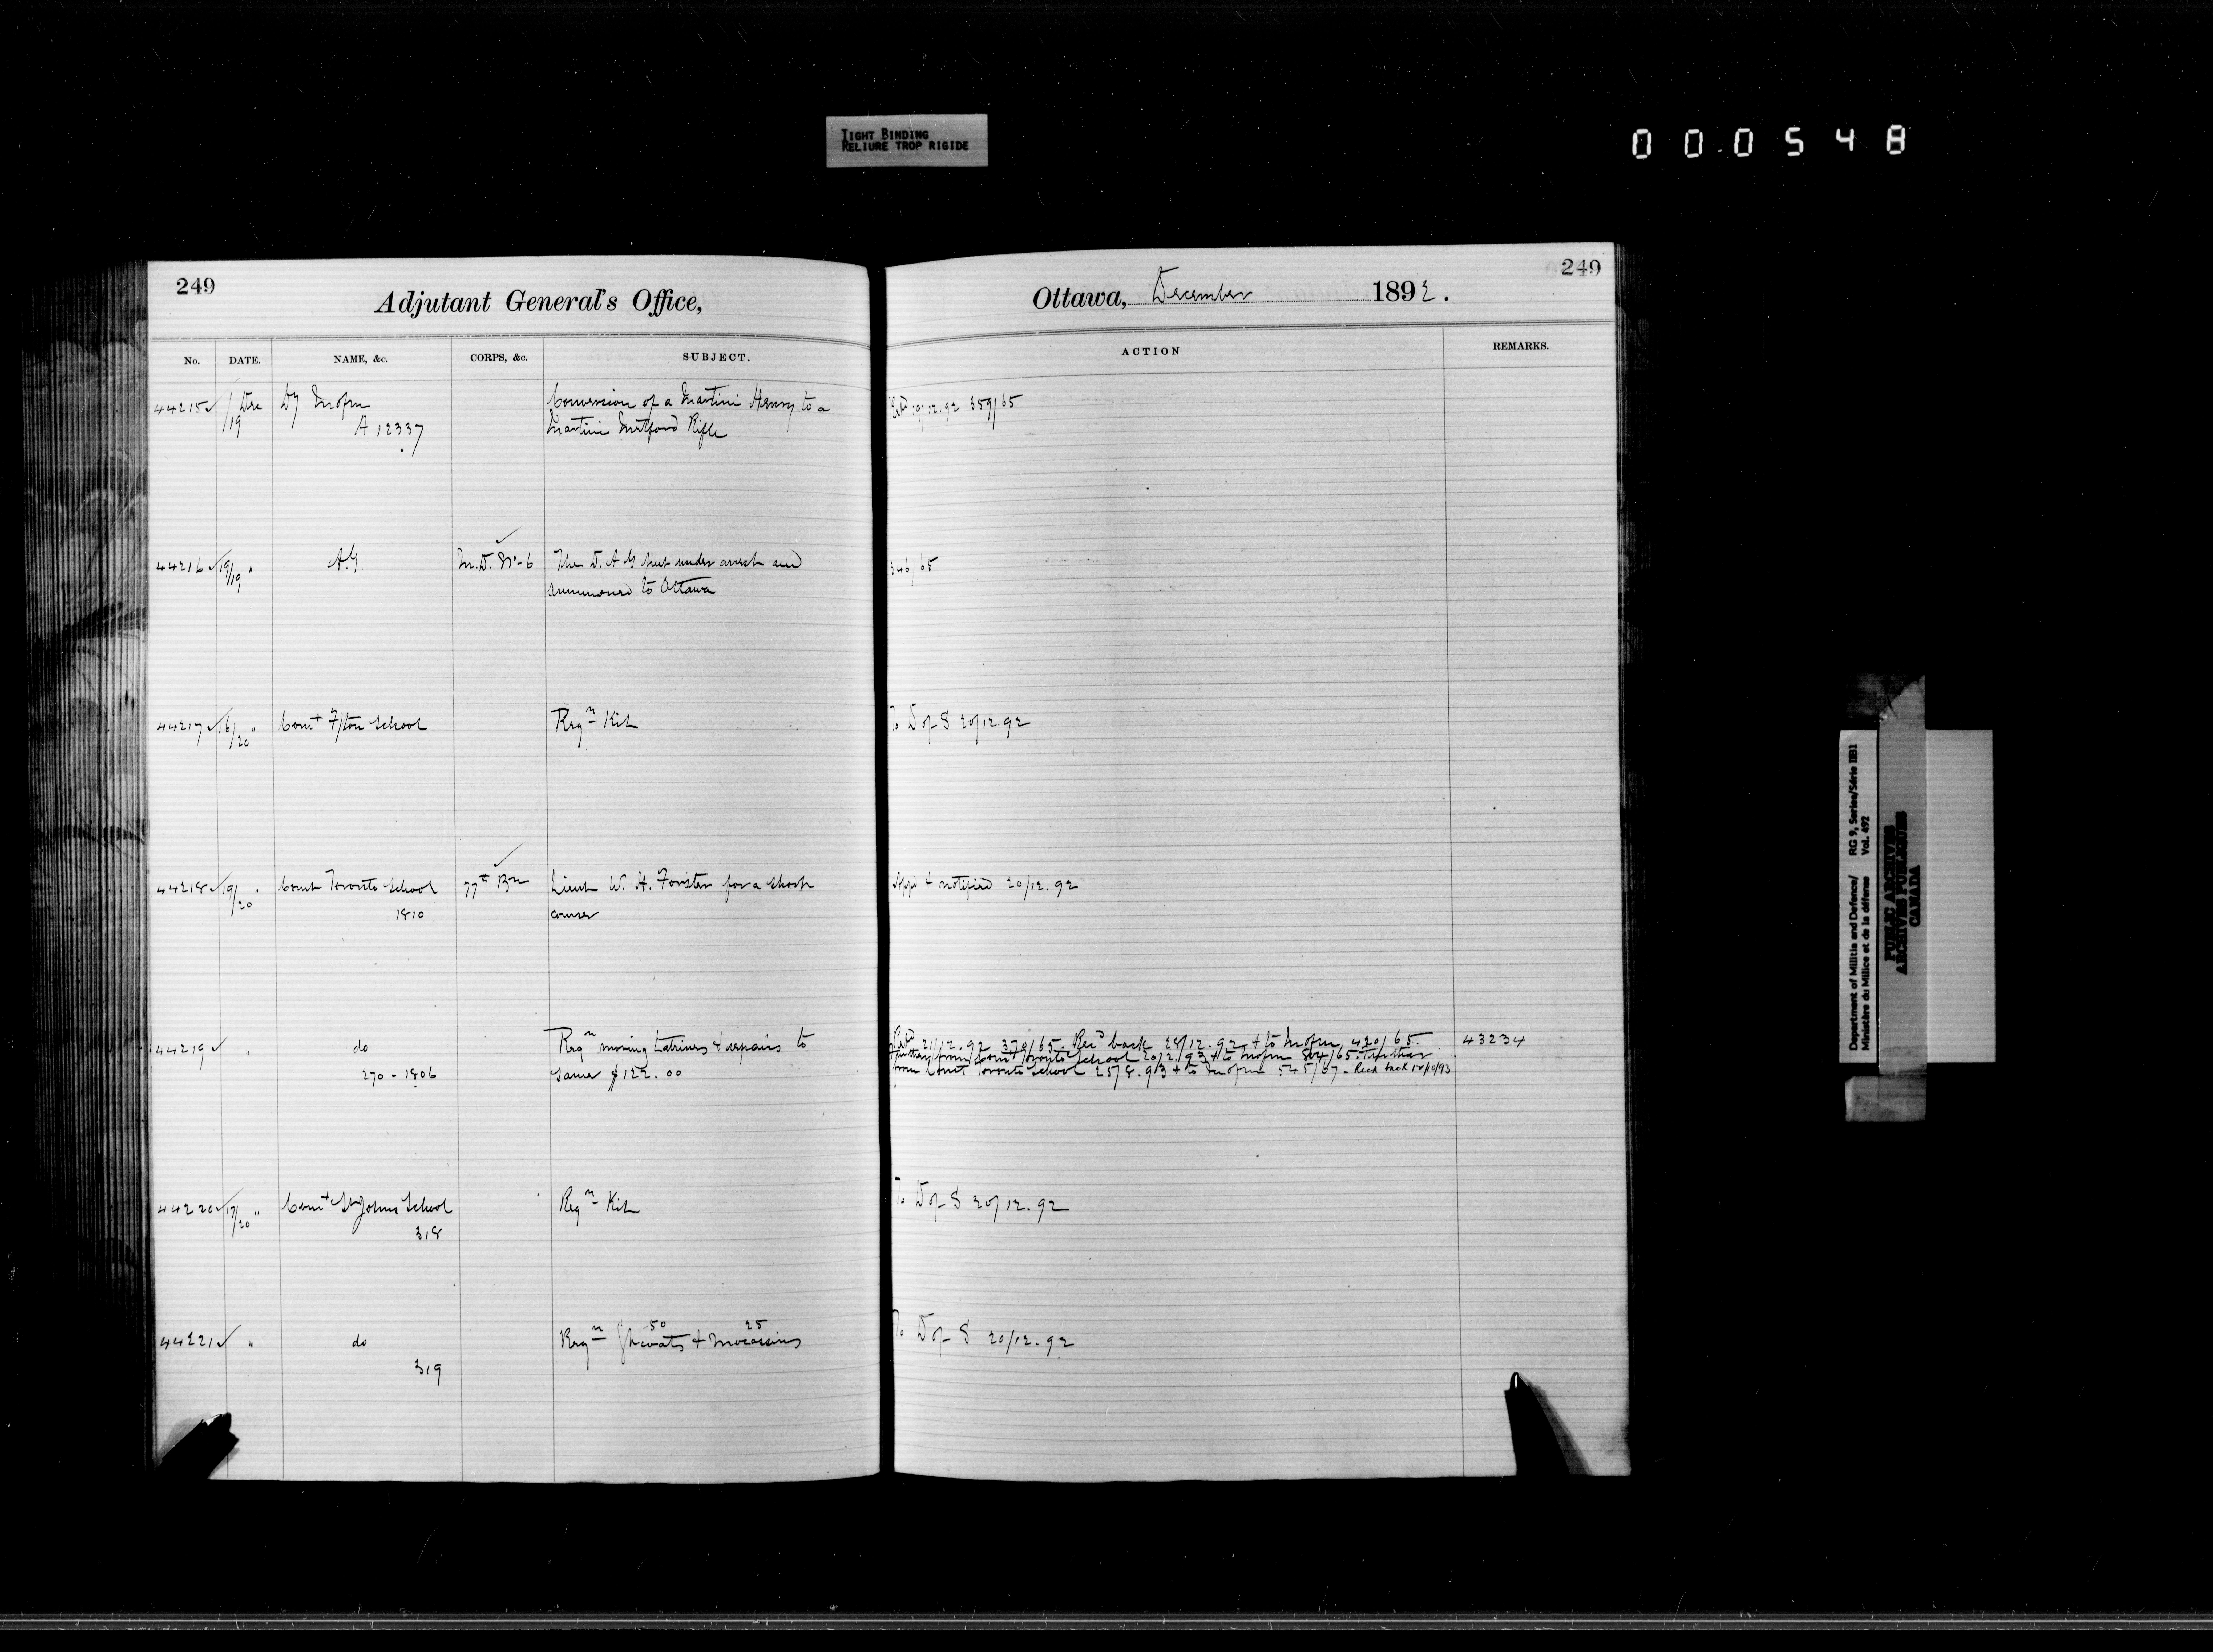 TIGHT BINDING
RELIURE TROP RIGIDE
000548
249
Adjutant General's Office,
No. DATE. NAME, &c. CORPS, &c. SUBJECT.
44215 ✓ / Dec 19 Dy Mofm Conversion of a Martini Henry to a
A 12337 Martini Metford Rifle
44216 ✓ 19/19 " A.G. M.D. No 6 The D.A.G put under arrest and
summoned to Ottawa
44217 ✓ 16/20 " Comt F/ton School Reqn Kit
44218 ✓ 19/20 " Comt Toronto School 77th Bn Lieut W. H. Forster for a short
1810 course
44219 ✓ " do Reqn moving Latrines & repairs to
270 - 1806 same $122.00
44220 ✓ 17/20 " Comt St Johns School Reqn Kit
318
44221 ✓ " do Reqn 50 & 25 Mocassins
319
249
Ottawa, December 1892.
ACTION REMARKS.
19/12.92 359/65
346/65
To D of S 20/12.92
& notified 20/12.92
21/12.92 370/65. Rec'd back 28/12.92 & to Mofm 420/65. 43234
from Comt Toronto School 20/2/93 & to Mofm 804/65. Further
from Comt Toronto School 25/8.93 & to Mofm 545/67 - Recd back
To D of S 20/12.92
To D of S 20/12.92
Department of Militia and Defence/ RG 9, Series/Série IIB1
Ministère du Milice et de la défense Vol. 492
PUBLIC ARCHIVES
ARCHIVES PUBLIQUES
CANADA